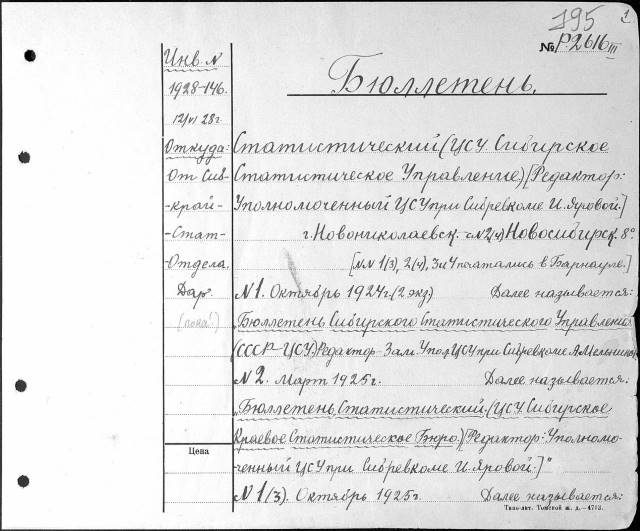 195
1
№ Р-2616 III
Бюллетень.
Инв. N
1928-146.
12/VI 28 г.
Откуда:
От Сиб-
-край-
-Стат-
-Отдела.
Дар.
(пока!)
Цена
Статистический (ЦСУ. Сибирское
Статистическое Управление) [Редактор:
Уполномоченный ЦСУ при Сибревкоме И. Яровой.]
г. Новониколаевск. с N2(4) Новосибирск. 8°.
[NN 1(3), 2(4), 3 и 4 печатались в Барнауле.]
N 1. Октябрь 1924 г. (2 экз.) Далее называется:
„Бюллетень Сибирского Статистического Управления
(СССР-ЦСУ) Редактор-Зам. Упол ЦСУ при Сибревкоме А. Мельников
N 2. Март 1925 г. Далее называется:
„Бюллетень, Статистический. (ЦСУ Сибирское
Краевое Статистическое Бюро.) [Редактор: Уполномо-
ченный ЦСУ при Сибревкоме И. Яровой.]"
N 1(3). Октябрь 1925 г. Далее называется:
Типо-лит. Томской ж. д.—4713.